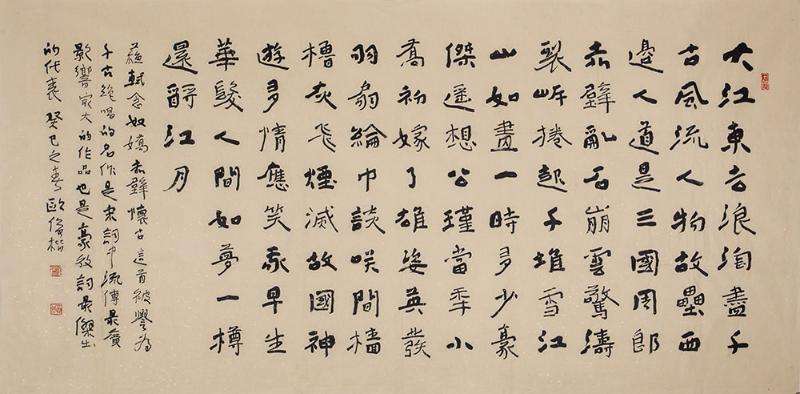 大江東去浪淘盡千
古風流人物故壘西
邊人道是三國周郎
赤壁亂石崩雲驚濤
裂岸捲起千堆雪江
山如畫一時多少豪
傑遙想公瑾當年小
喬初嫁了雄姿英發
羽扇綸巾談笑間檣
櫓灰飛煙滅故國神
遊多情應笑我早生
華髮人間如夢一樽
還酹江月
蘇軾念奴嬌赤壁懷古這首被譽為
千古絕唱的名作是宋詞中流傳最廣
影響最大的作品也是豪放詞最傑出
的代表 癸巳之春 歐